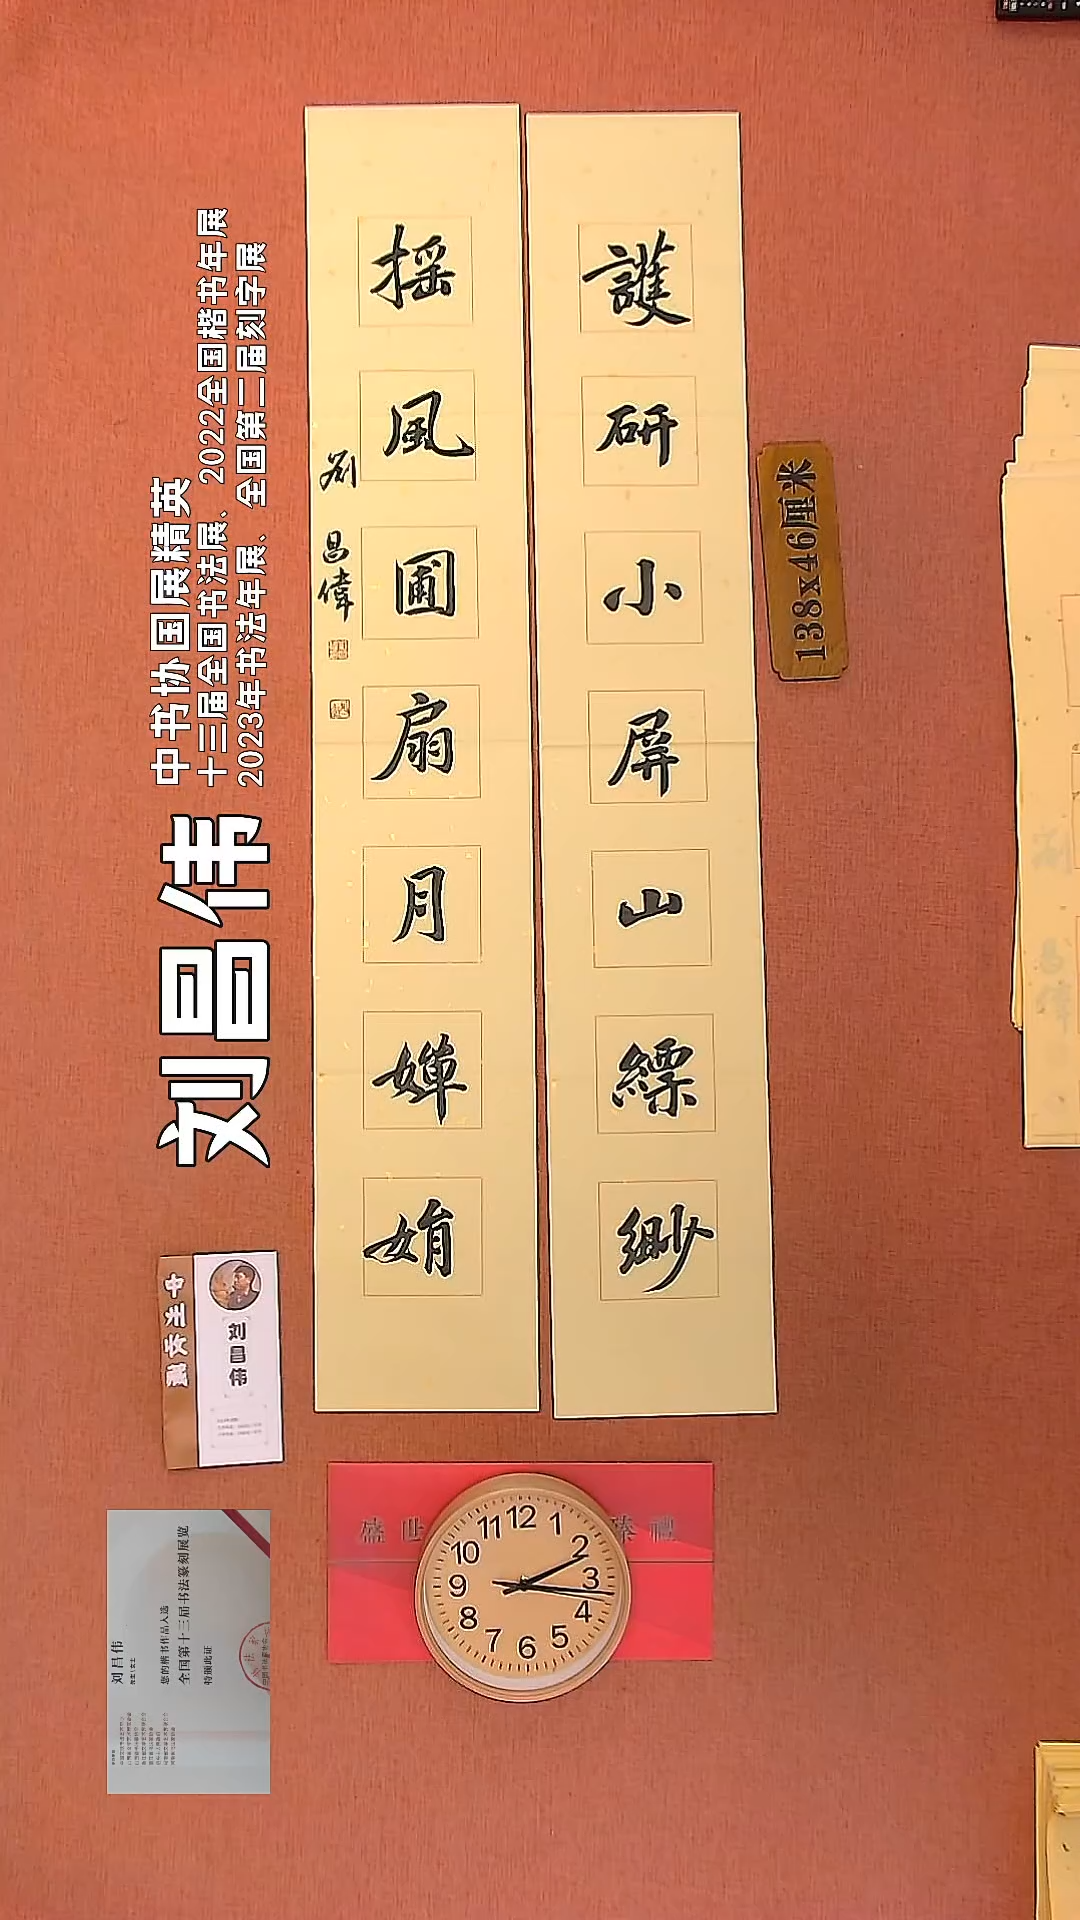 護研小屏山縹緲
搖風圃扇月嬋娟
劉昌偉
138x46厘米
刘昌伟
中书协国展精英
十三届全国书法展、2022全国楷书年展
2023年书法年展、全国第二届刻字展
刘昌伟
刘昌伟
您的楷书作品入选
全国第十三届书法篆刻展览
特颁此证
盛世 臻禮
12
1
2
3
4
5
6
7
8
9
10
11